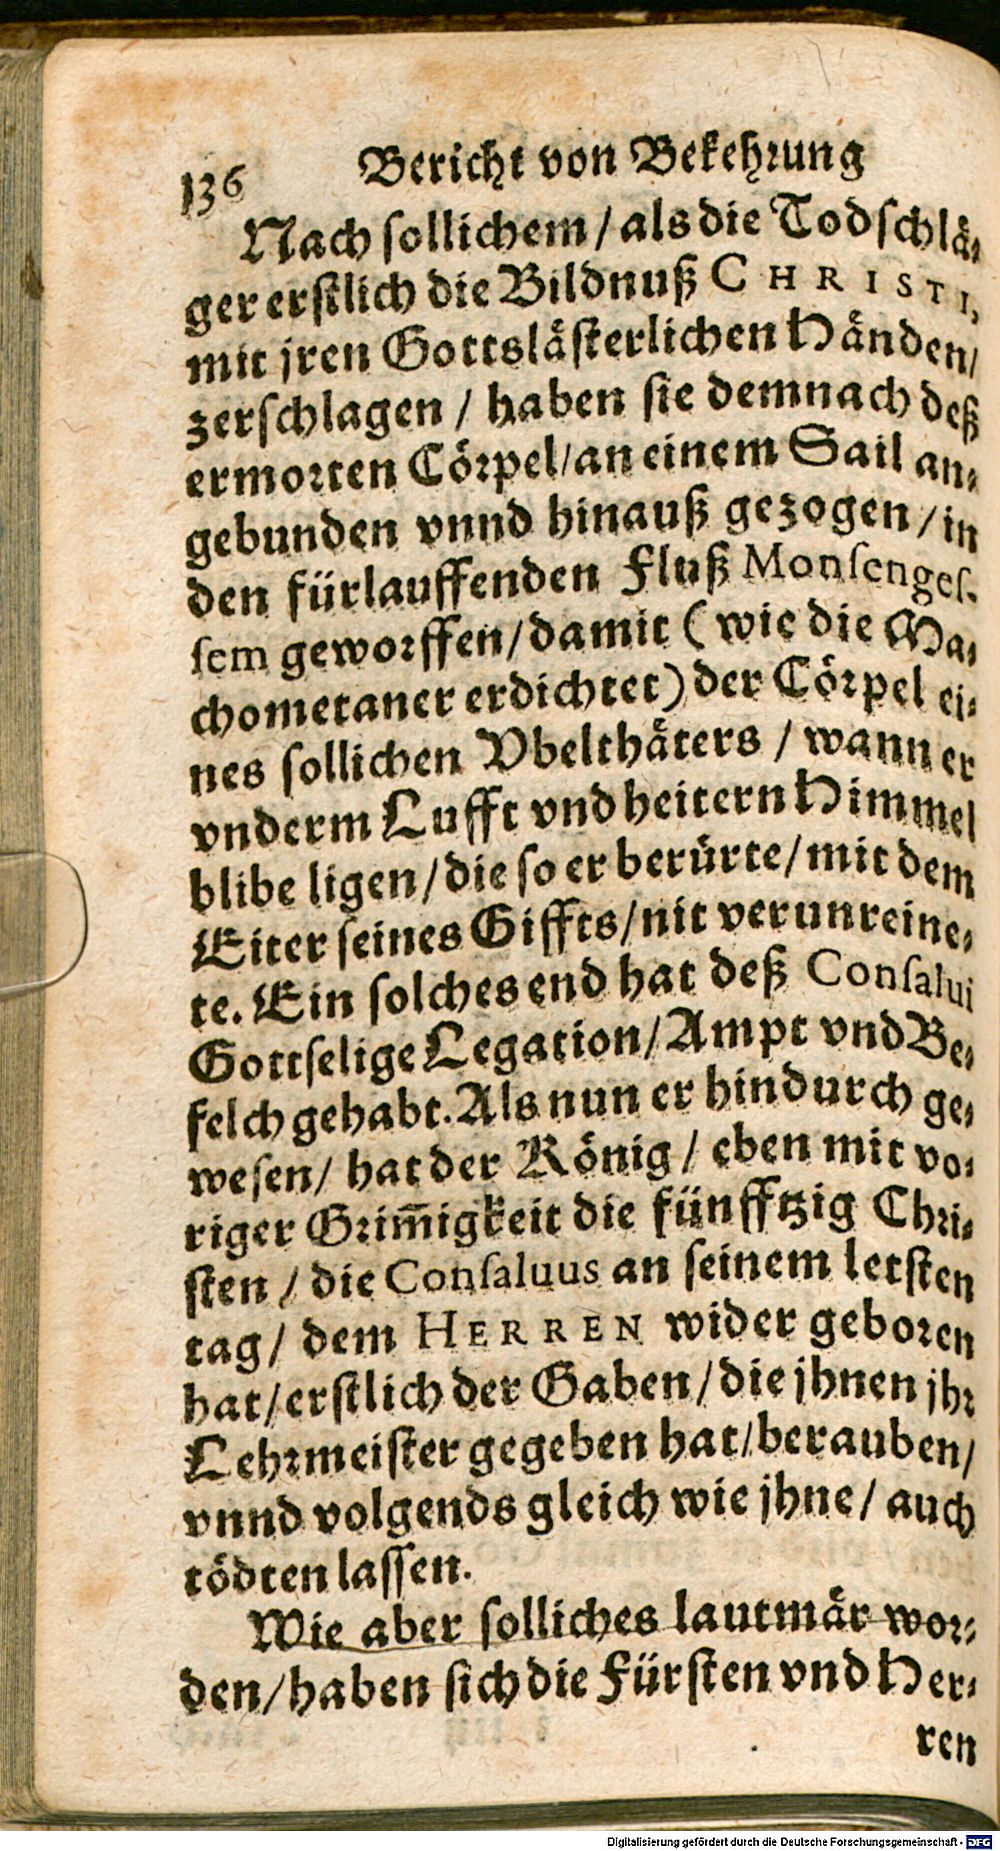 136 Bericht von Bekehrung
Nach sollichem / als die Todschlä⸗
ger erstlich die Bildnuß CHRISTI,
mit jren Gottslästerlichen Händen/
zerschlagen / haben sie demnach deß
ermorten Cörpel/an einem Sail an⸗
gebunden vnnd hinauß gezogen / in
den fürlauffenden Fluß Monsenges⸗
sem geworffen/damit (wie die Ma⸗
chometaner erdichtet) der Cörpel ei⸗
nes sollichen Vbelthäters / wann er
vnderm Lufft vnd heitern Himmel
blibe ligen/die so er berürte/mit dem
Eiter seines Giffts/nit verunreine⸗
te. Ein solches end hat deß Consalui
Gottselige Legation/Ampt vnd Be⸗
felch gehabt. Als nun er hindurch ge⸗
wesen/ hat der König / eben mit vo⸗
riger Grim̄igkeit die fünfftzig Chri⸗
sten / die Consaluus an seinem letsten
tag/ dem HERREN wider geboren
hat/erstlich der Gaben/die jhnen jhr
Lehrmeister gegeben hat/berauben/
vnnd volgends gleich wie jhne/ auch
tödten lassen.
Wie aber solliches lautmär wor⸗
den/haben sich die Fürsten vnd Her⸗
ren
Digitalisierung gefördert durch die Deutsche Forschungsgemeinschaft - DFG